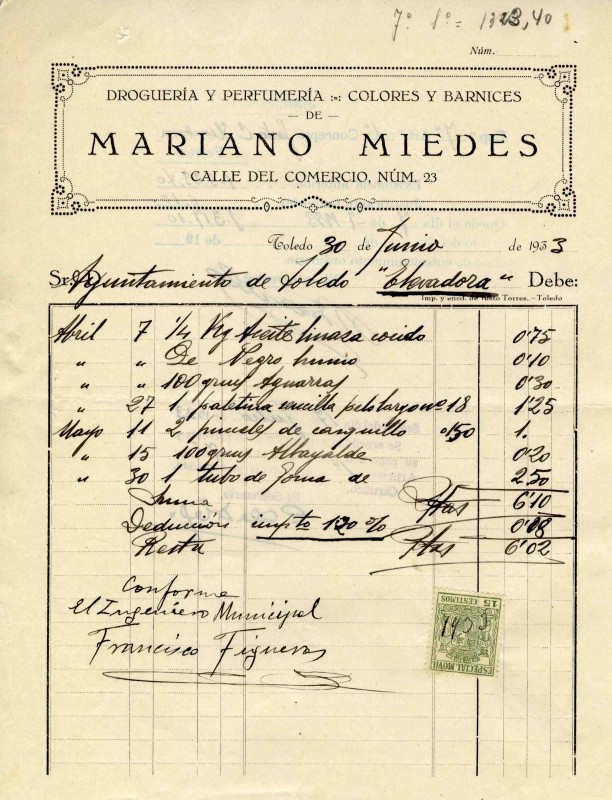 7º 1º = 1323,40
Núm.
DROGUERÍA Y PERFUMERÍA :-: COLORES Y BARNICES
DE
MARIANO MIEDES
CALLE DEL COMERCIO, NÚM. 23
Toledo 30 de Junio de 1933
Sr. Ayuntamiento de Toledo "Elevadora" Debe:
Imp. y encd. de Justo Torres.-Toledo
Abril 7 1/4 Kg Aceite linaza cocido 0'75
" " De Negro humo 0'10
" " 100 grms Aguarras 0'30
" 27 1 paletina sencilla pelo largo nº 18 1'25
Mayo 11 2 pinceles de casquillo 0'50 1.
" 15 100 grms Albayalde 0'20
" 30 1 tubo de Goma de 2.50
Suma Ptas 6'10
Deducion impto 1'30 % 0'08
Resta Ptas 6'02
Conforme
El Ingeniero Municipal
Francisco Figueras
15 CENTIMOS
1933
ESPECIAL MOVIL